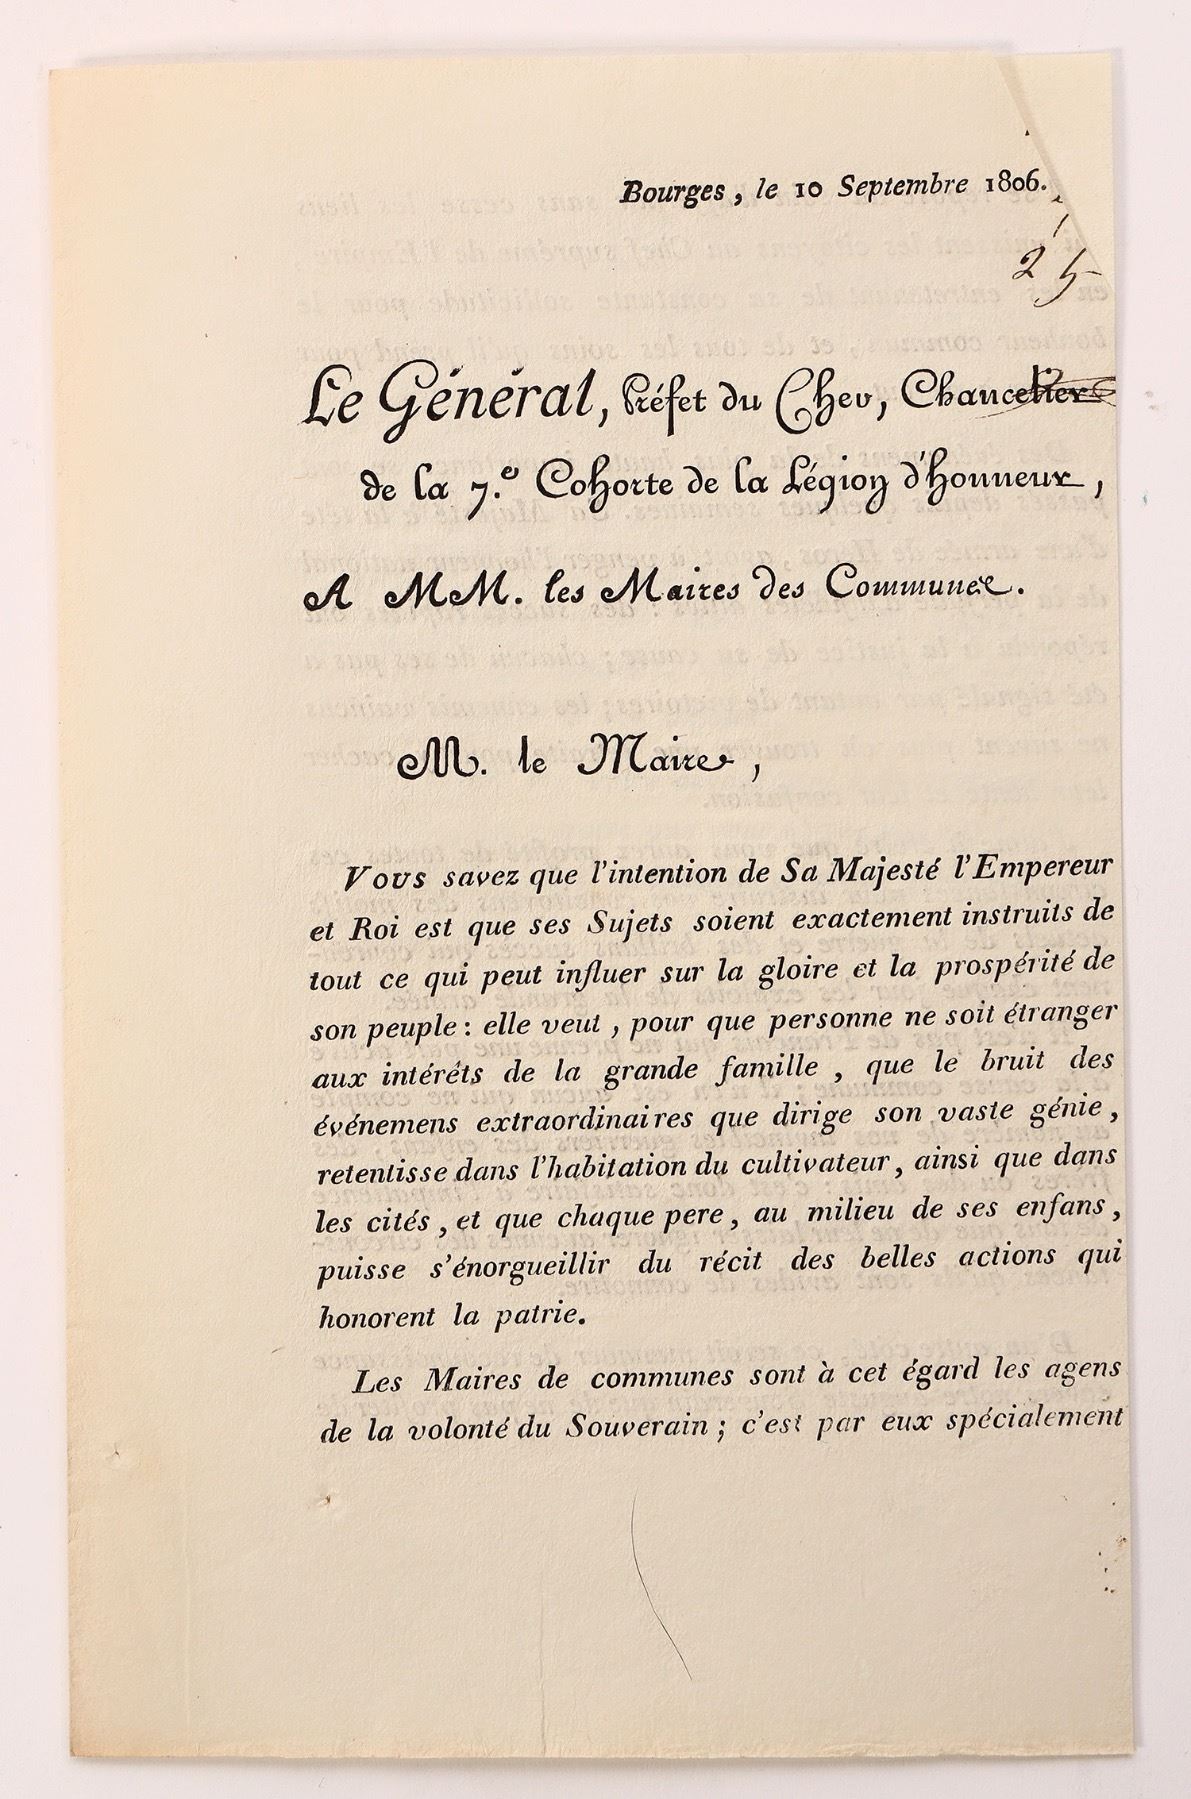 Bourges, le 10 Septembre 1806.
25
Le Général, Préfet du Cher, Chancelier
de la 7.e Cohorte de la Légion d'honneur,
A MM. les Maires des Communes.
M. le Maire,
Vous savez que l'intention de Sa Majesté l'Empereur
et Roi est que ses Sujets soient exactement instruits de
tout ce qui peut influer sur la gloire et la prospérité de
son peuple : elle veut, pour que personne ne soit étranger
aux intérêts de la grande famille, que le bruit des
événemens extraordinaires que dirige son vaste génie,
retentisse dans l'habitation du cultivateur, ainsi que dans
les cités, et que chaque pere, au milieu de ses enfans,
puisse s'énorgueillir du récit des belles actions qui
honorent la patrie.
Les Maires de communes sont à cet égard les agens
de la volonté du Souverain ; c'est par eux spécialement